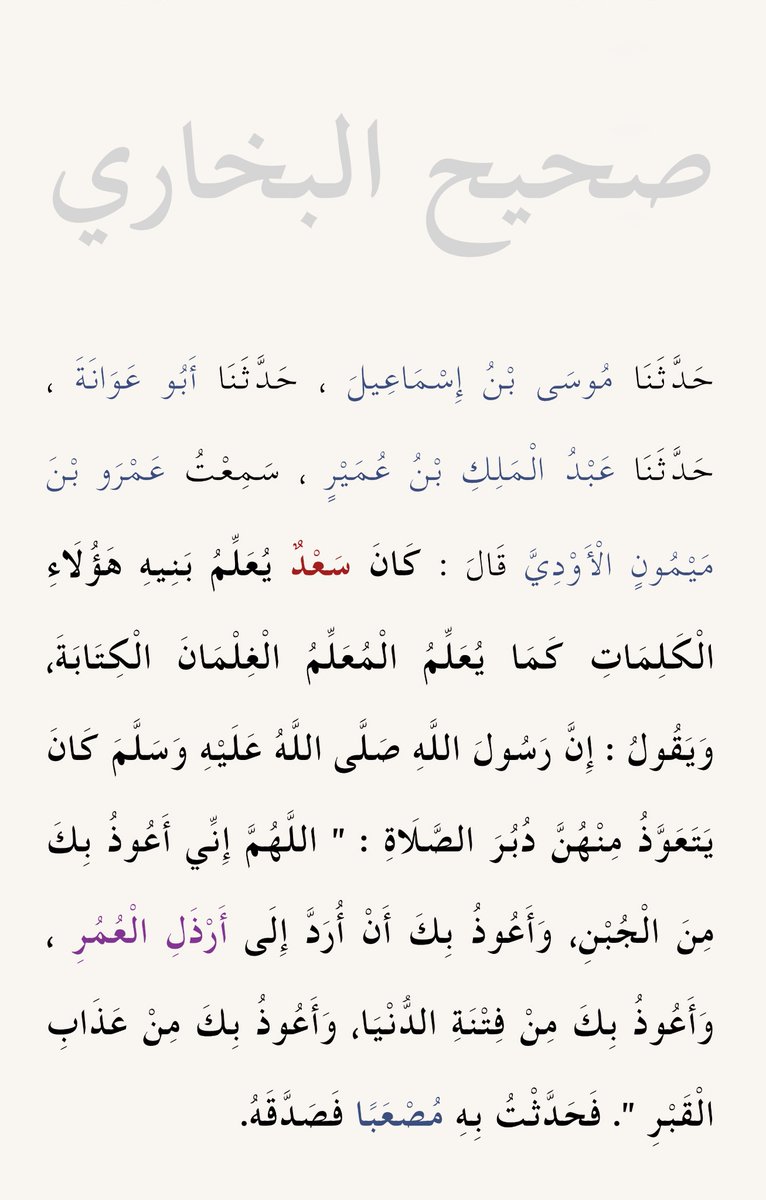 صحيح البخاري
حَدَّثَنَا مُوسَى بْنُ إِسْمَاعِيلَ ، حَدَّثَنَا أَبُو عَوَانَةَ ،
حَدَّثَنَا عَبْدُ الْمَلِكِ بْنُ عُمَيْرٍ ، سَمِعْتُ عَمْرَو بْنَ
مَيْمُونٍ الْأَوْدِيَّ قَالَ : كَانَ سَعْدٌ يُعَلِّمُ بَنِيهِ هَؤُلَاءِ
الْكَلِمَاتِ كَمَا يُعَلِّمُ الْمُعَلِّمُ الْغِلْمَانَ الْكِتَابَةَ،
وَيَقُولُ : إِنَّ رَسُولَ اللَّهِ صَلَّى اللَّهُ عَلَيْهِ وَسَلَّمَ كَانَ
يَتَعَوَّذُ مِنْهُنَّ دُبُرَ الصَّلَاةِ : " اللَّهُمَّ إِنِّي أَعُوذُ بِكَ
مِنَ الْجُبْنِ، وَأَعُوذُ بِكَ أَنْ أُرَدَّ إِلَى أَرْذَلِ الْعُمُرِ ،
وَأَعُوذُ بِكَ مِنْ فِتْنَةِ الدُّنْيَا، وَأَعُوذُ بِكَ مِنْ عَذَابِ
الْقَبْرِ ". فَحَدَّثْتُ بِهِ مُصْعَبًا فَصَدَّقَهُ.